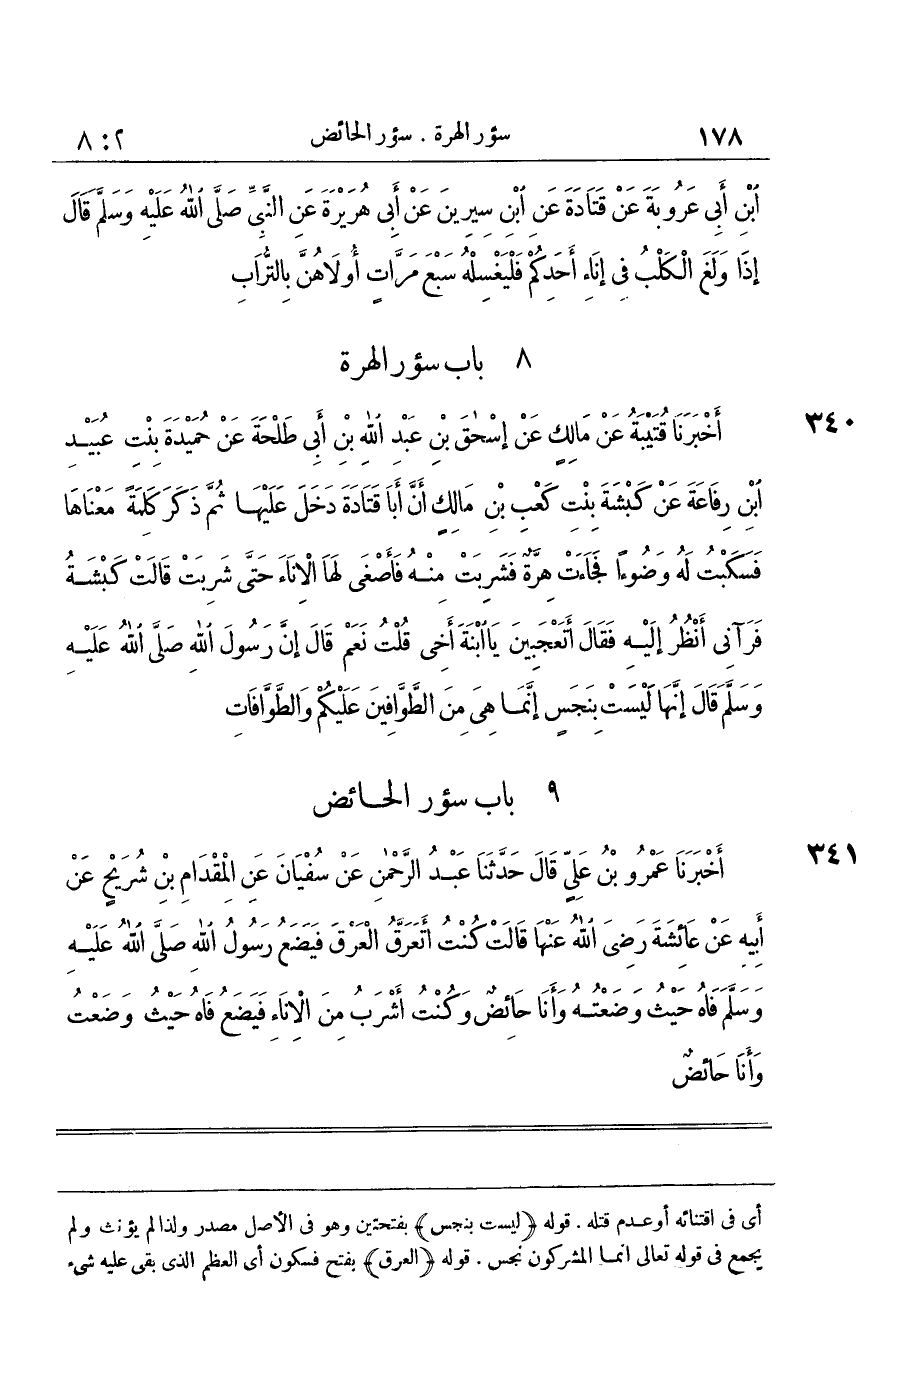 ١٧٨ سؤر الهرة . سؤر الحائض ٢ : ٨
ٱبْنِ أَبِي عَرُوبَةَ عَنْ قَتَادَةَ عَنِ ٱبْنِ سِيرِينَ عَنْ أَبِي هُرَيْرَةَ عَنِ النَّبِيِّ صَلَّى ٱللهُ عَلَيْهِ وَسَلَّمَ قَالَ
إِذَا وَلَغَ الْكَلْبُ فِي إِنَاءِ أَحَدِكُمْ فَلْيَغْسِلْهُ سَبْعَ مَرَّاتٍ أُولَاهُنَّ بِالتُّرَابِ
٨ باب سؤر الهرة
٣٤٠ أَخْبَرَنَا قُتَيْبَةُ عَنْ مَالِكٍ عَنْ إِسْحٰقَ بْنِ عَبْدِ ٱللهِ بْنِ أَبِي طَلْحَةَ عَنْ حُمَيْدَةَ بِنْتِ عُبَيْدِ
ٱبْنِ رِفَاعَةَ عَنْ كَبْشَةَ بِنْتِ كَعْبِ بْنِ مَالِكٍ أَنَّ أَبَا قَتَادَةَ دَخَلَ عَلَيْهَا ثُمَّ ذَكَرَ كَلِمَةً مَعْنَاهَا
فَسَكَبْتُ لَهُ وَضُوءًا فَجَاءَتْ هِرَّةٌ فَشَرِبَتْ مِنْهُ فَأَصْغَى لَهَا الْإِنَاءَ حَتَّى شَرِبَتْ قَالَتْ كَبْشَةُ
فَرَآنِي أَنْظُرُ إِلَيْهِ فَقَالَ أَتَعْجَبِينَ يَا ٱبْنَةَ أَخِي قُلْتُ نَعَمْ قَالَ إِنَّ رَسُولَ ٱللهِ صَلَّى ٱللهُ عَلَيْهِ
وَسَلَّمَ قَالَ إِنَّهَا لَيْسَتْ بِنَجَسٍ إِنَّمَا هِيَ مِنَ الطَّوَّافِينَ عَلَيْكُمْ وَالطَّوَّافَاتِ
٩ باب سؤر الحائض
٣٤١ أَخْبَرَنَا عَمْرُو بْنُ عَلِيٍّ قَالَ حَدَّثَنَا عَبْدُ الرَّحْمٰنِ عَنْ سُفْيَانَ عَنِ الْمِقْدَامِ بْنِ شُرَيْحٍ عَنْ
أَبِيهِ عَنْ عَائِشَةَ رَضِيَ ٱللهُ عَنْهَا قَالَتْ كُنْتُ أَتَعَرَّقُ الْعَرْقَ فَيَضَعُ رَسُولُ ٱللهِ صَلَّى ٱللهُ عَلَيْهِ
وَسَلَّمَ فَاهُ حَيْثُ وَضَعْتُهُ وَأَنَا حَائِضٌ وَكُنْتُ أَشْرَبُ مِنَ الْإِنَاءِ فَيَضَعُ فَاهُ حَيْثُ وَضَعْتُ
وَأَنَا حَائِضٌ
أى فى اقتنائه أو عدم قتله . قوله ﴿ليست بنجس﴾ بفتحتين وهو فى الأصل مصدر ولذا لم يؤنث ولم
يجمع فى قوله تعالى انما المشركون نجس . قوله ﴿العرق﴾ بفتح فسكون أى العظم الذى بقى عليه شىء